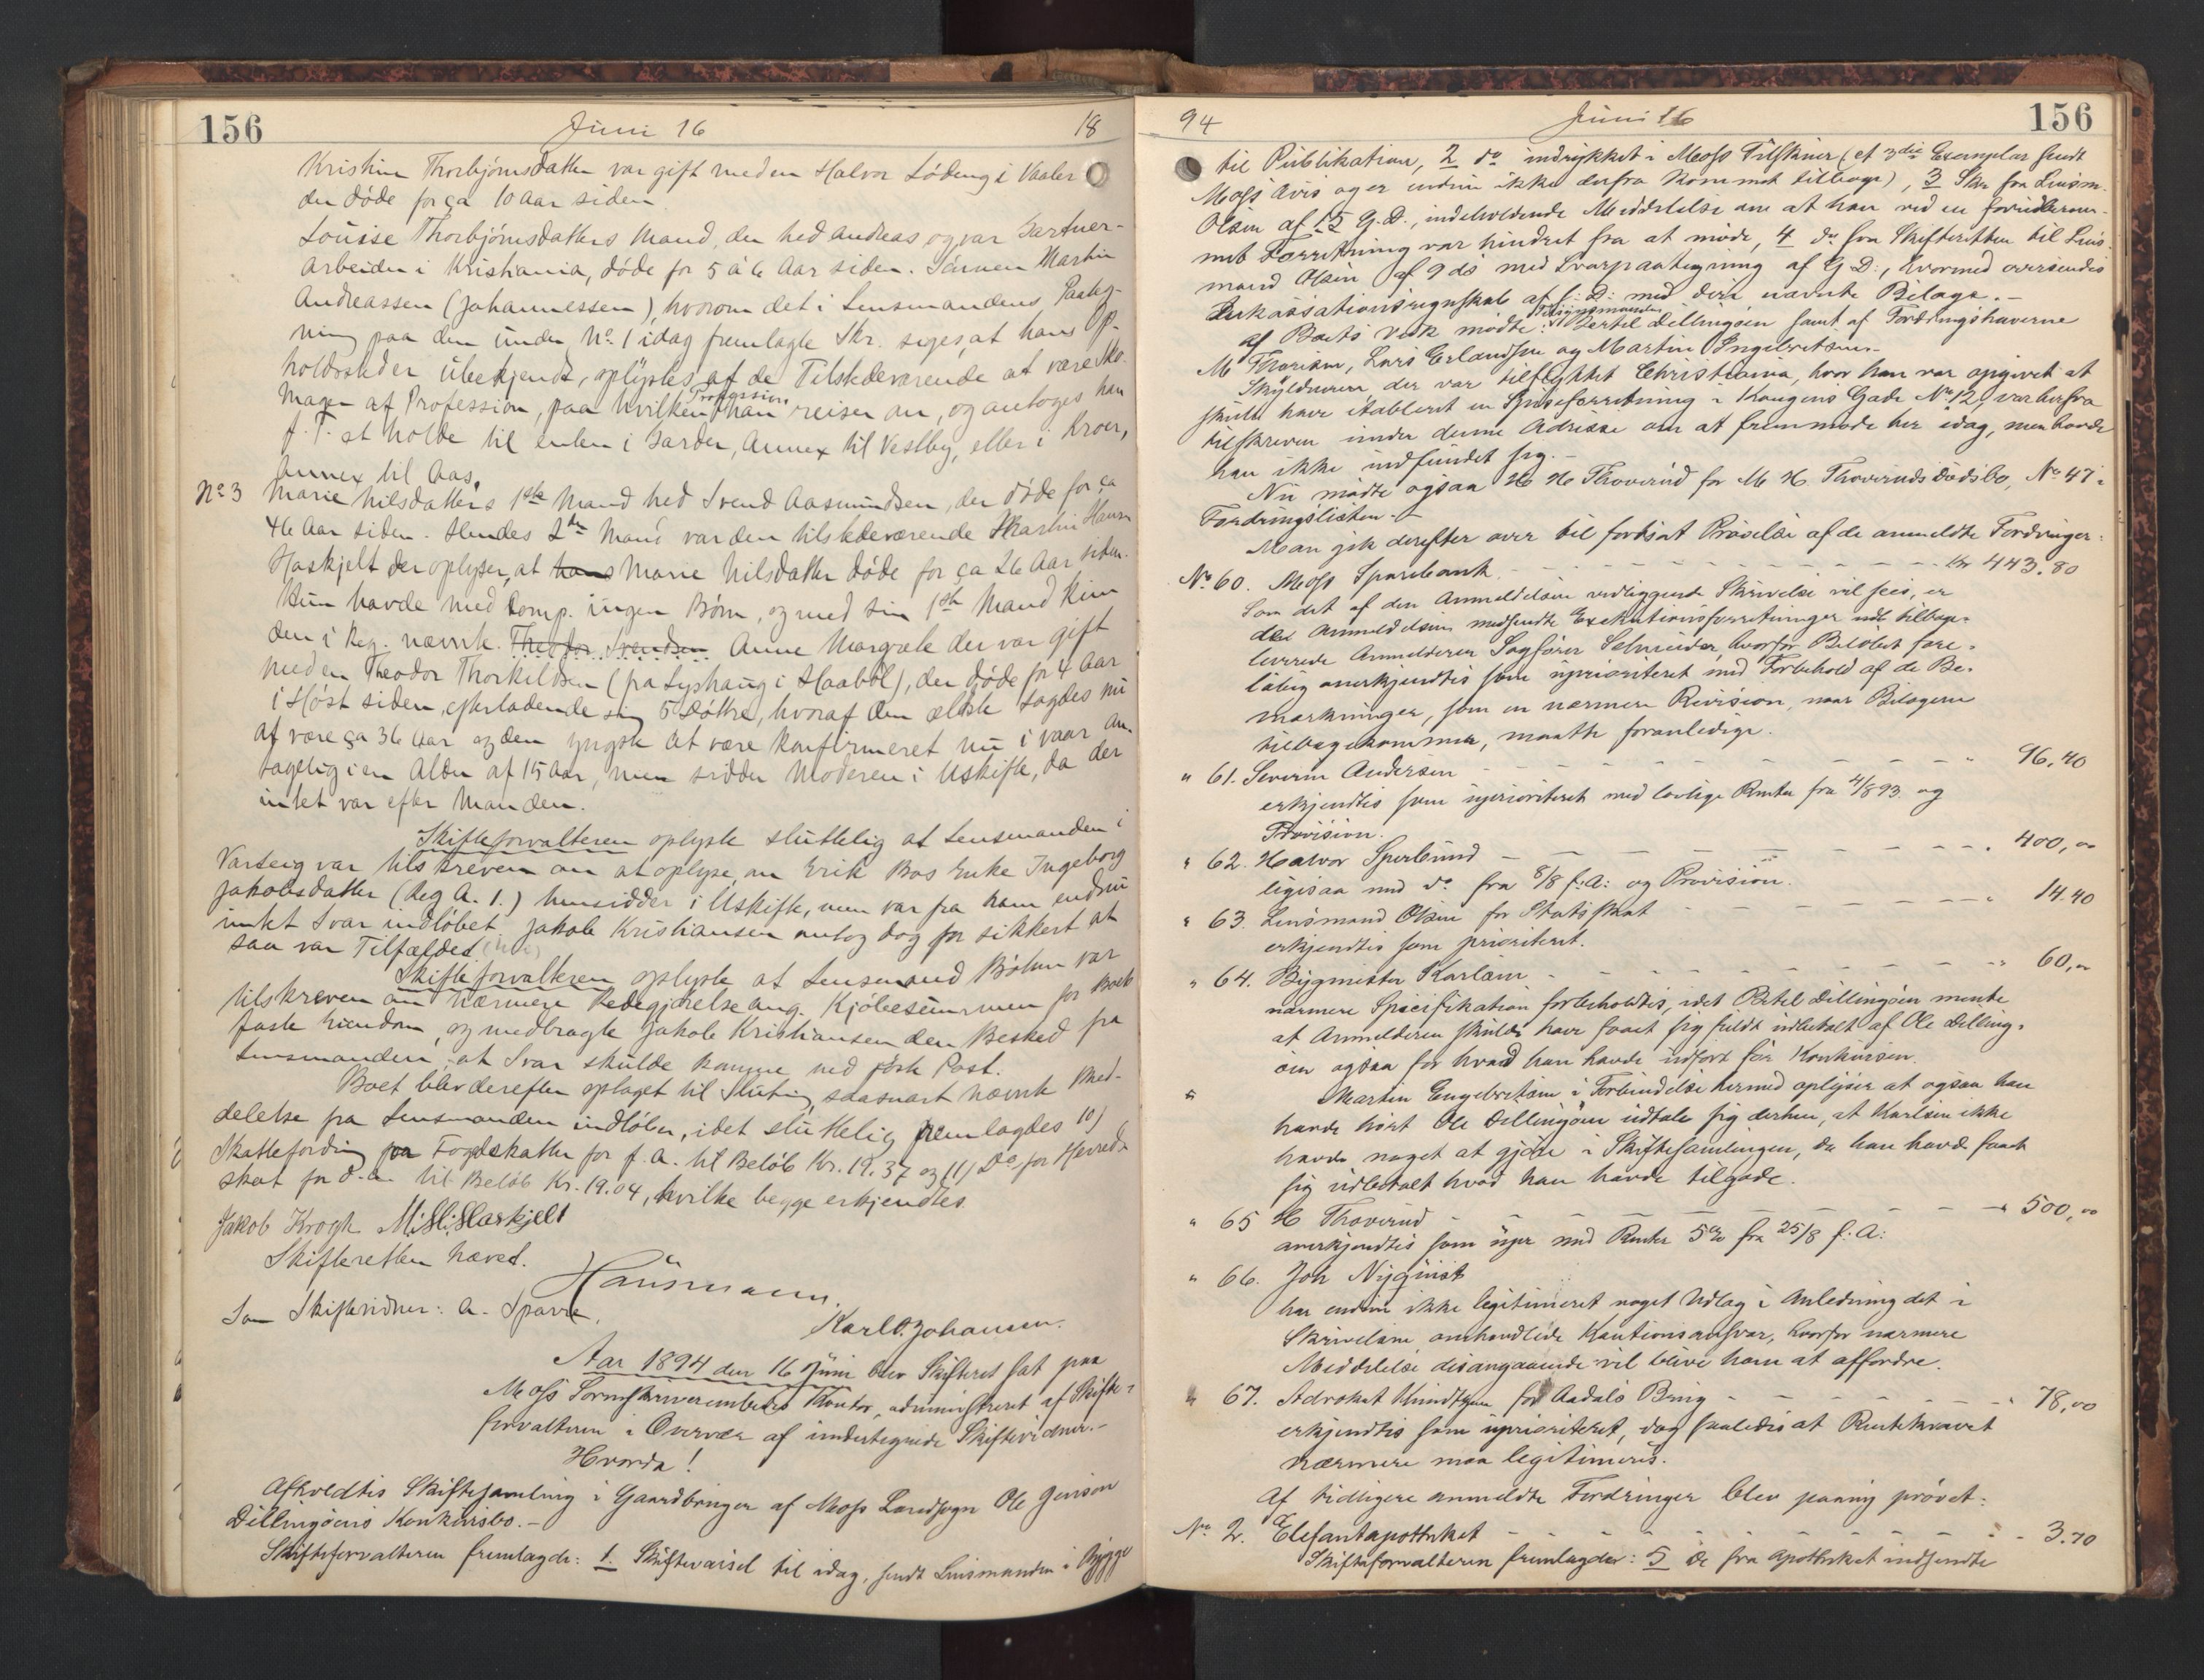 156
Juni 16
18
Kristine Thorbjørnsdatter var gift med en Halvor Lødeng i Vaaler
der døde for ca 10 Aar siden.
Louise Thorbjørnsdatters Mand, der hed Andreas og var Gartner-
arbeider i Kristiania, døde for 5 à 6 Aar siden. Sønnen Martin
Andreassen (Johannessen), hvorom det i Lensmandens Paateg-
ning paa den under No. 1 idag fremlagte Skr. siges, at hans Op-
holdssted er ubekjendt, oplystes af de Tilstedeværende at være
Mager af Profession, paa hvilken Profession han reiser om, og antoges han
f. T. at holde til enten i Garder, Annex til Vestby, eller i Kroer,
Annex til Aas.
No 3 Marie Nilsdatters 1ste Mand hed Svend Aasmundsen, der døde for ca
46 Aar siden. Hendes 2den Mand var den tilstedeværende Martin Hansen
Haskjelt der oplyser, at hans Marie Nilsdatter døde for ca 26 Aar siden.
Hun havde med Comp. ingen Børn, og med sin 1ste Mand kun
den i Reg. nævnte Theodor Svendsen Anne Margrete der var gift
med en Theodor Thorkildsen (fra Lyshaug i Haabøl), der døde for 4 Aar
i Høst siden, efterladende sig 5 Døttre, hvoraf den ældste sagdes nu
at være ca 36 Aar og den yngste at være konfirmeret nu i vaar an-
tagelig i en Alder af 15 Aar, men sidder Moderen i Uskifte, da der
intet var efter Manden.
Skifteforvalteren oplyste sluttelig at Lensmanden i
Varteig var tilskreven om at oplyse, om Erik Bos Enke Ingeborg
Jakobsdatter (Reg A. 1.) hensidder i Uskifte, men var fra ham endnu
intet Svar indløbet. Jakob Kristiansen antog dog for sikkert at
saa var Tilfældet.
Skifteforvalteren oplyste at Lensmand Bøhm var
tilskreven om nærmere Redegjørelse ang. Kjøbesummen for Boets
faste Eiendom, og medbragte Jakob Kristiansen den Besked fra
Lensmanden, at Svar skulde komme med første Post.
Boet blev derefter optaget til Slutning, saasnart nævnte Med-
delelse fra Lensmanden indløber, idet sluttelig fremlagdes 10)
Skattefordring for Fogdskatter for f. A. til Beløb Kr. 19.37 og 11) Do for Herreds-
skat for d. A. til Beløb Kr. 19.04, hvilke begge erkjendtes.
Jakob Krogh M. H. Haskjelt
Skifteretten hævet.
Hansmann.
Som Skiftevidner: A. Sparre.
Karl O. Johansen.
Aar 1894 den 16 Juni blev Skifteret sat paa
Moss Sorenskriverembeds Kontor, administreret af Skifte-
forvalteren i Overvær af undertegnede Skiftevidner.-
Hvorda!
Afholdtes Skiftesamling i Gaardbruger af Moss Landsogn Ole Jenson
Dillingøens Konkursbo.-
Skifteforvalteren fremlagde: 1. Skiftevarsel til idag, sendt Lensmanden i Rygge
94
Juni 16
156
til Publikation, 2 do indrykket i Moss Tilskuer (et 3die Exemplar sendt
Moss Avis og er endnu ikke derfra kommet tilbage), 3 Skr fra Lensm.
Olsen af 15 G.D., indeholdende Meddelelse om at han ved en
Forretning var hindret fra at møde, 4 do fra Skifteretten til Lens-
mand Olsen af 9 ds med Svarpaategning af G.D., hvormed oversendes
Inkassationsregnskab af s. D. med deri nævnte Bilage.-
Af Boets Vedk. mødte: Tilsynsmanden Bertel Dillingøen samt af Fordringshaverne
M Thoresen, Lars Erlandsen og Martin Engebretsen.-
Skyldneren, der var tilflyttet Christiania, hvor han var opgivet at
skulle have etableret en Spiseforretning i Kongens Gade No 12, var herfra
tilskreven under denne Adresse om at fremmøde her idag, men havde
han ikke indfundet sig.-
Nu mødte ogsaa H. H. Thoverud for M. H. Thoveruds Dødsbo, No 47 i
Fordringslisten.-
Man gik derefter over til fortsat Prøvelse af de anmeldte Fordringer:
No 60. Moss Sparebank - - - Kr 443.80
Som det af den Anmeldelsen vedliggende Skrivelse vil sees, er
de Anmeldelsen medsendte Exekutionsforretninger tilbage-
leverede Anmelderen Sagfører Schneider, hvorfor Beløbet fore-
løbig anerkjendtes som uprioriteret med Forbehold af de Be-
mærkninger, som en nærmere Revision, naar Bilagene
tilbagekommer, maatte foranledige.
" 61. Severin Andersen - - - 96,40
erkjendtes som uprioriteret med lovlige Renter fra 4/893 og
Provision.
" 62. Halvor Sperlund - - - 400,00
ligesaa med do fra 8/8 f: A: og Provision.
" 63. Lensmand Olsen for Statsskat - - - 14.40
erkjendtes som prioriteret.
" 64. Bygmester Karlsen - - - 60,00
nærmere Specifikation forbeholdtes, idet Bertel Dillingøen mente
at Anmelderen skulde have faaet sig fuldt udbetalt af Ole Dilling-
øen ogsaa for hvad han havde udført før Konkursen.
Martin Engebretsen i Forbindelse hermed oplyser at ogsaa han
havde hørt Ole Dillingøen udtale sig derhen, at Karlsen ikke
havde noget at gjøre i Skiftesamlingen, da han havde faaet
sig udbetalt hvad han havde tilgode.
" 65 H Thoverud - - - 500,00
anerkjendtes som upr med Renter 5% fra 25/8 f: A:
" 66. Joh Nyquist
har endnu ikke legitimeret noget Udlæg i Anledning det i
Skrivelsen omhandlede Kautionsansvar, hvorfor nærmere
Meddelelse desangaaende vil blive ham at affordre.
" 67. Advokat Knudtzen for Aadals Brug - - - 78,00
erkjendtes som uprioriteret, dog saaledes at Rentekravet
nærmere maa legitimeres.
Af tidligere anmeldte Fordringer blev paany prøvet:
No 2. Elefantapotheket - - - 3.70
Skifteforvalteren fremlagde: 5 de fra Apotheket indsendte